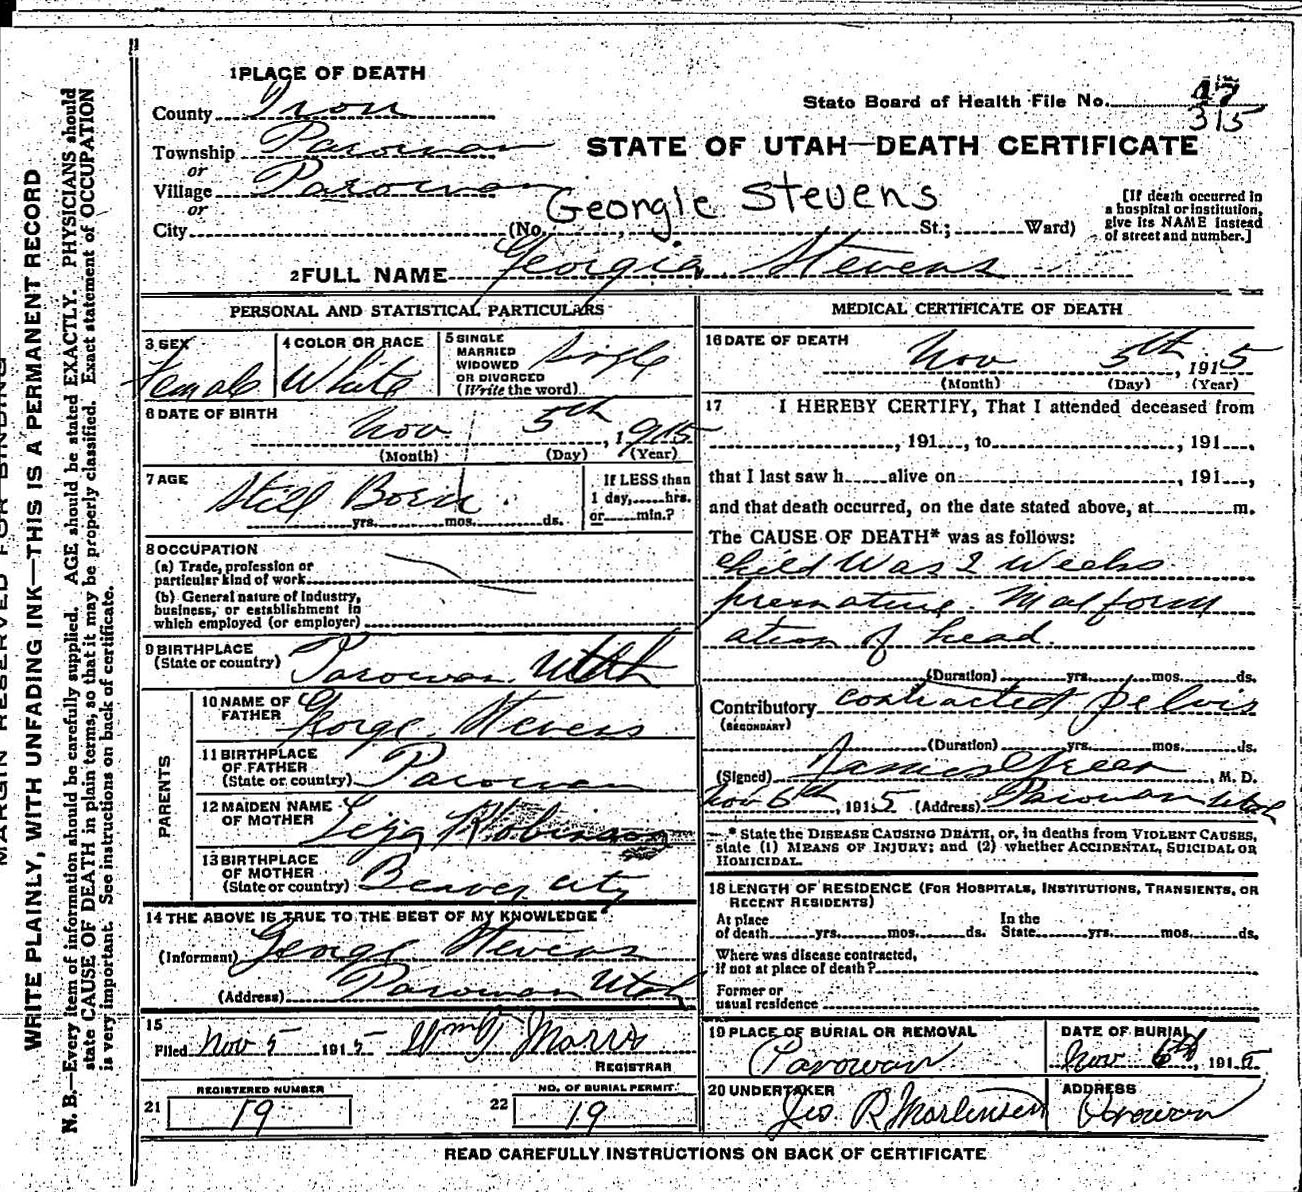 1 PLACE OF DEATH
County Iron
State Board of Health File No. 47
315
Township Parowan
or
Village Parowan
or
City (No. St.; Ward)
STATE OF UTAH—DEATH CERTIFICATE
Georgie Stevens
[If death occurred in
a hospital or institution,
give its NAME instead
of street and number.]
2 FULL NAME Georgia Stevens
PERSONAL AND STATISTICAL PARTICULARS
3 SEX
Female
4 COLOR OR RACE
White
5 SINGLE
MARRIED
WIDOWED
OR DIVORCED
(Write the word)
Single
6 DATE OF BIRTH
Nov 5th, 1915
(Month) (Day) (Year)
7 AGE
Still Born
yrs. mos. ds.
If LESS than
1 day, hrs.
or min.?
8 OCCUPATION
(a) Trade, profession or
particular kind of work
(b) General nature of industry,
business, or establishment in
which employed (or employer)
9 BIRTHPLACE
(State or country)
Parowan Utah
PARENTS
10 NAME OF
FATHER
George Stevens
11 BIRTHPLACE
OF FATHER
(State or country)
Parowan
12 MAIDEN NAME
OF MOTHER
Robinson
13 BIRTHPLACE
OF MOTHER
(State or country)
Beaver city
14 THE ABOVE IS TRUE TO THE BEST OF MY KNOWLEDGE
(Informant) George Stevens
(Address) Parowan Utah
15
Filed Nov 5 1915 Wm Morris
REGISTRAR
REGISTERED NUMBER
21 19
NO. OF BURIAL PERMIT
22 19
MEDICAL CERTIFICATE OF DEATH
16 DATE OF DEATH
Nov 5th, 1915
(Month) (Day) (Year)
17 I HEREBY CERTIFY, That I attended deceased from
, 191 , to , 191 ,
that I last saw h alive on , 191 ,
and that death occurred, on the date stated above, at m.
The CAUSE OF DEATH* was as follows:
Child Was 2 Weeks
premature. Malform
ation of head.
(Duration) yrs. mos. ds.
Contributory contracted pelvis
(SECONDARY)
(Duration) yrs. mos. ds.
(Signed) James Green, M. D.
Nov 6th, 1915 (Address) Parowan Utah
* State the DISEASE CAUSING DEATH, or, in deaths from VIOLENT CAUSES,
state (1) MEANS OF INJURY; and (2) whether ACCIDENTAL, SUICIDAL OR
HOMICIDAL.
18 LENGTH OF RESIDENCE (FOR HOSPITALS, INSTITUTIONS, TRANSIENTS, OR
RECENT RESIDENTS)
At place
of death yrs. mos. ds.
In the
State yrs. mos. ds.
Where was disease contracted,
if not at place of death?
Former or
usual residence
19 PLACE OF BURIAL OR REMOVAL
Parowan
DATE OF BURIAL
Nov 6th, 1915
20 UNDERTAKER
Geo. R Mortensen
ADDRESS
Parowan
READ CAREFULLY INSTRUCTIONS ON BACK OF CERTIFICATE
MARGIN RESERVED FOR BINDING
WRITE PLAINLY, WITH UNFADING INK—THIS IS A PERMANENT RECORD
N. B.—Every item of information should be carefully supplied. AGE should be stated EXACTLY. PHYSICIANS should
state CAUSE OF DEATH in plain terms, so that it may be properly classified. Exact statement of OCCUPATION
is very important. See instructions on back of certificate.